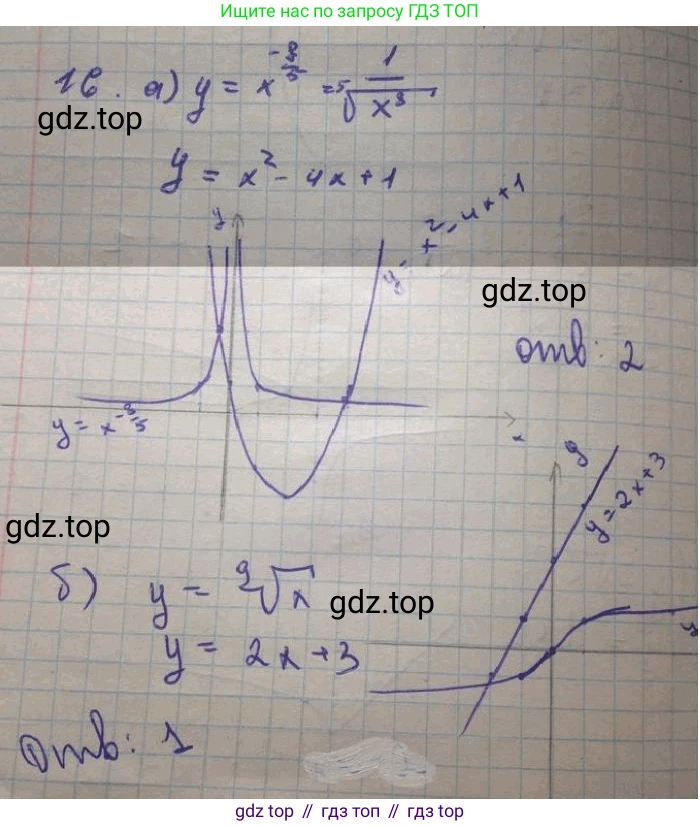 Ищите нас по запросу ГДЗ ТОП
16. а) y = x^(-8/5) = ⁵√(1/x⁸)
gdz.top
y = x² - 4x + 1
y
y = x² - 4x + 1
gdz.top
отв: 2
y = x^(-8/5)
x
y
y = 2x+3
gdz.top
б) y = ⁹√x
gdz.top
x
y = 2x+3
Отв: 1
gdz top // гдз топ // gdz.top // гдз.топ